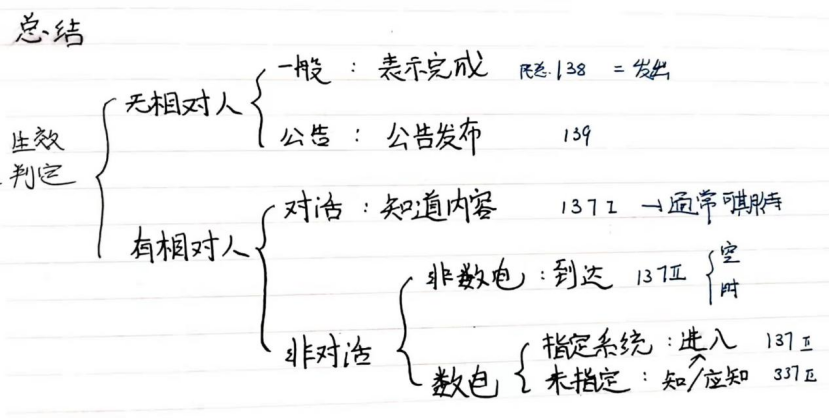 总结
生效
判定
无相对人
一般：表示完成 民总.138 = 发出
公告：公告发布 139
有相对人
对话：知道内容 137Ⅰ →通常可期待
非对话
非数电：到达 137Ⅱ
空
时
数电
指定系统：进入 137Ⅱ
未指定：知/应知 337Ⅱ